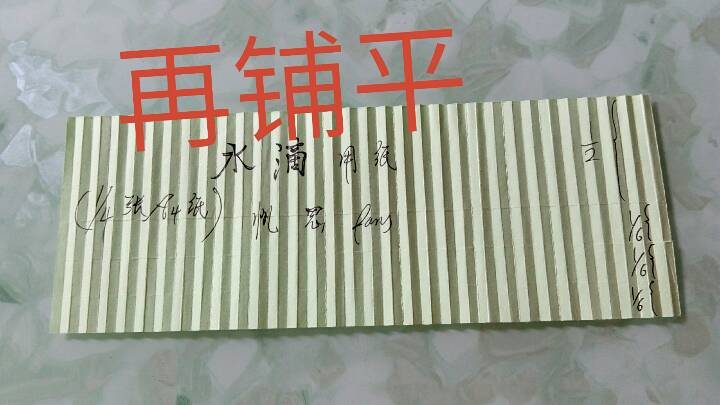 再铺平
水滴用纸
(1/4张A4纸) 帆恩 fans
1/2
1/6
1/6
1/6